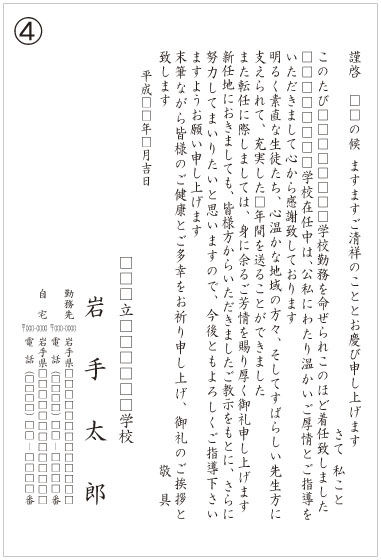 ④
謹啓　□□の候　ますますご清祥のこととお慶び申し上げます
さて　私こと
このたび□□□□□□□□学校勤務を命ぜられこのほど着任致しました
□□□□□□□学校在任中は、公私にわたり温かいご厚情とご指導を
いただきまして心から感謝致しております
明るく素直な生徒たち、心温かな地域の方々、そしてすばらしい先生方に
支えられて、充実した□年間を送ることができました
また転任に際しましては、身に余るご芳情を賜り厚く御礼申し上げます
新任地におきましても、皆様方からいただきましたご教示をもとに、さらに
努力してまいりたいと思いますので、今後ともよろしくご指導下さい
ますようお願い申し上げます
末筆ながら皆様のご健康とご多幸をお祈り申し上げ、御礼のご挨拶と
致します
敬具
平成□□年□月吉日
□□□立□□□□□学校
岩手太郎
勤務先　〒000-0000　岩手県□□□□□□□□□□
電話（□□□□）□□－□□□□番
自宅　〒000-0000　岩手県□□□□□□□□□□
電話（□□□□）□□－□□□□番